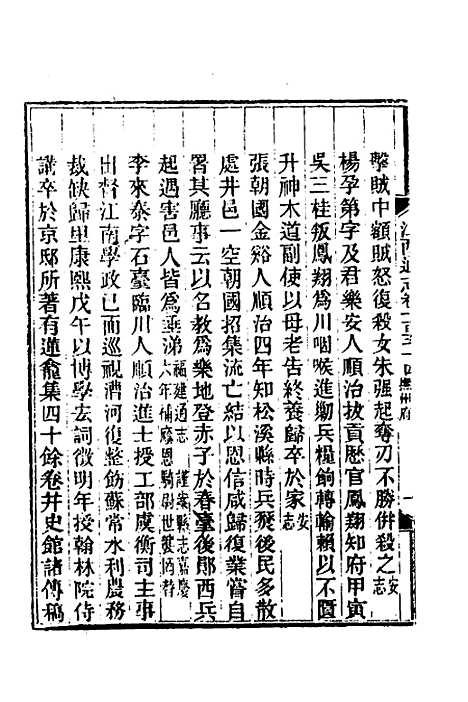 江西通志卷一百五十四 撫州府 一
擊賊中額賊怒復殺女朱强起奪刃不勝併殺之 安志
楊孕第字及君樂安人順治拔貢歷官鳳翔知府甲寅
吳三桂叛鳳翔爲川咽喉進勦兵糗餉轉輸賴以不匱
升神木道副使以母老告終養歸卒於家 安志
張朝國金谿人順治四年知松溪縣時兵燹後民多散
處井邑一空朝國招集流亡結以恩信咸歸復業嘗自
署其廳事云以名教爲樂地登赤子於春臺後鄖西兵
起遇害邑人皆爲垂涕 福建通志 謹案縣志嘉慶六年補廕恩騎尉世襲
李來泰字石臺臨川人順治進士授工部虞衡司主事
出督江南學政已而巡視漕河復整飭蘇常水利農務
裁缺歸里康熙戊午以博學宏詞徵明年授翰林院侍
講卒於京邸所著有蓮龕集四十餘卷幷史館諸傳稿